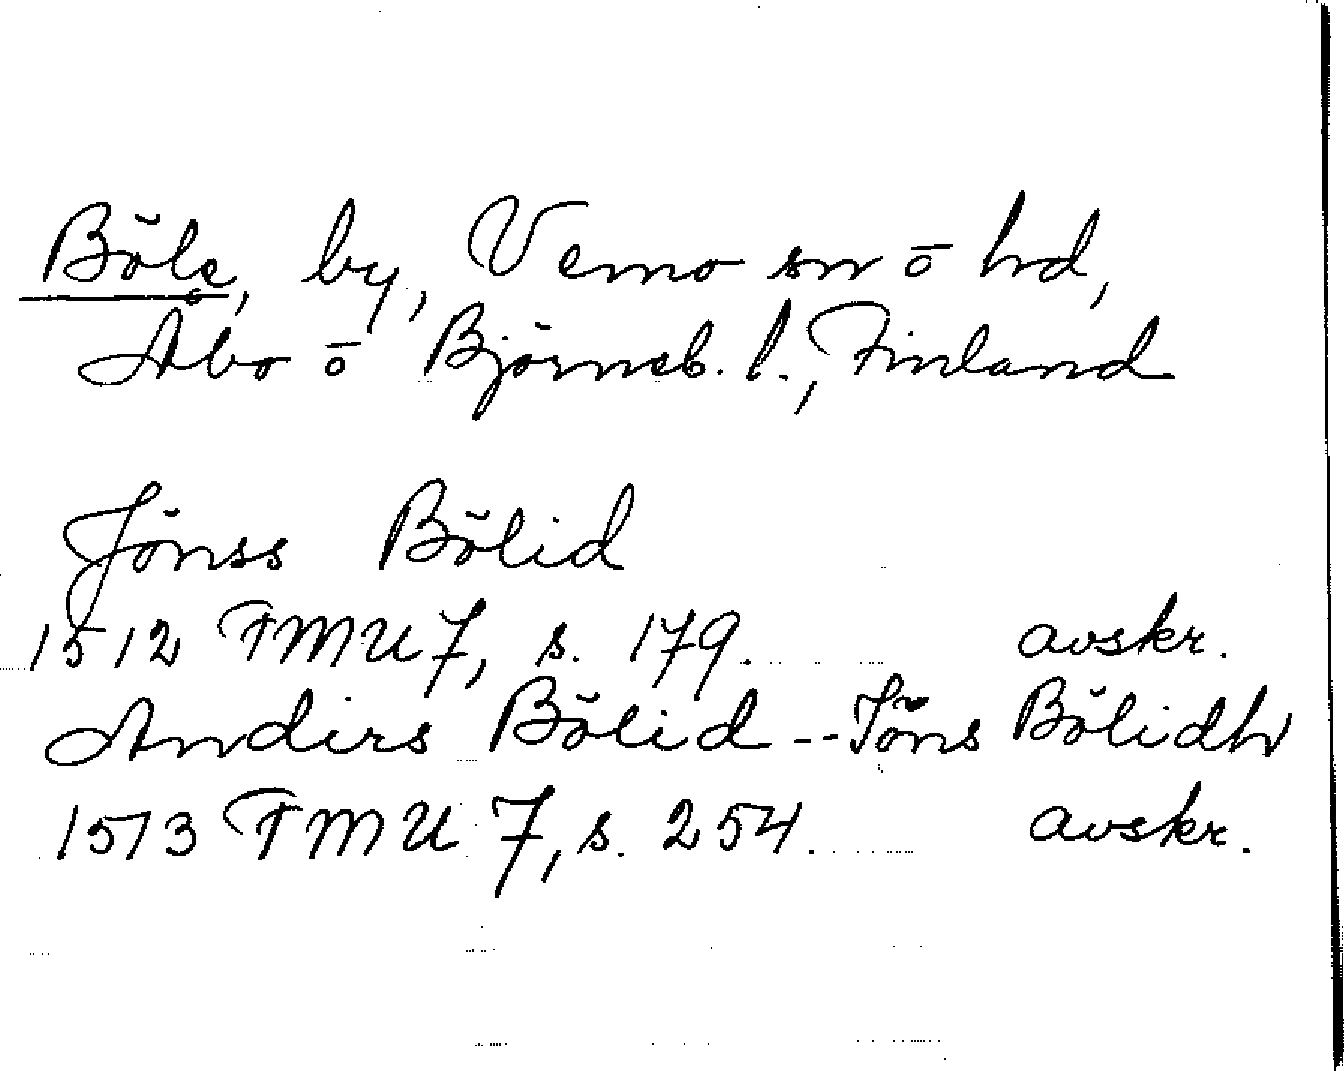 Böle, by, Vemo sn ō hd,
Åbo ō Björneb. l., Finland
Jönss Bölid
1512 FMU 7, s. 179. avskr.
Andirs Bölid -- Jöns Bölidh
1513 FMU 7, s. 254. avskr.